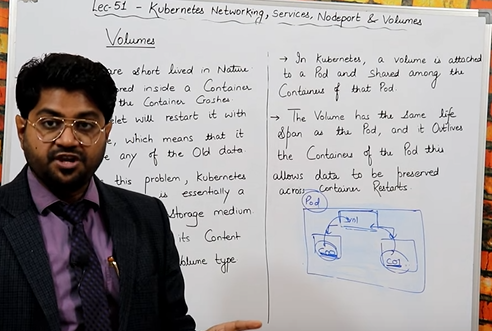 Lec-51 - Kubernetes Networking, Services, Nodeport & Volumes
Volumes
are short lived in Nature
inside a Container
the Container Crashes
will restart it with
, which means that it
any of the Old data
this problem, Kubernetes
is essentially a
Storage medium
its Content
volume type
→ In Kubernetes, a volume is attached
to a Pod and shared among the
Containers of that Pod
→ The Volume has the same life
span as the Pod, and it Outlives
the Containers of the Pod this
allows data to be preserved
across Container Restarts.
Pod
Vol